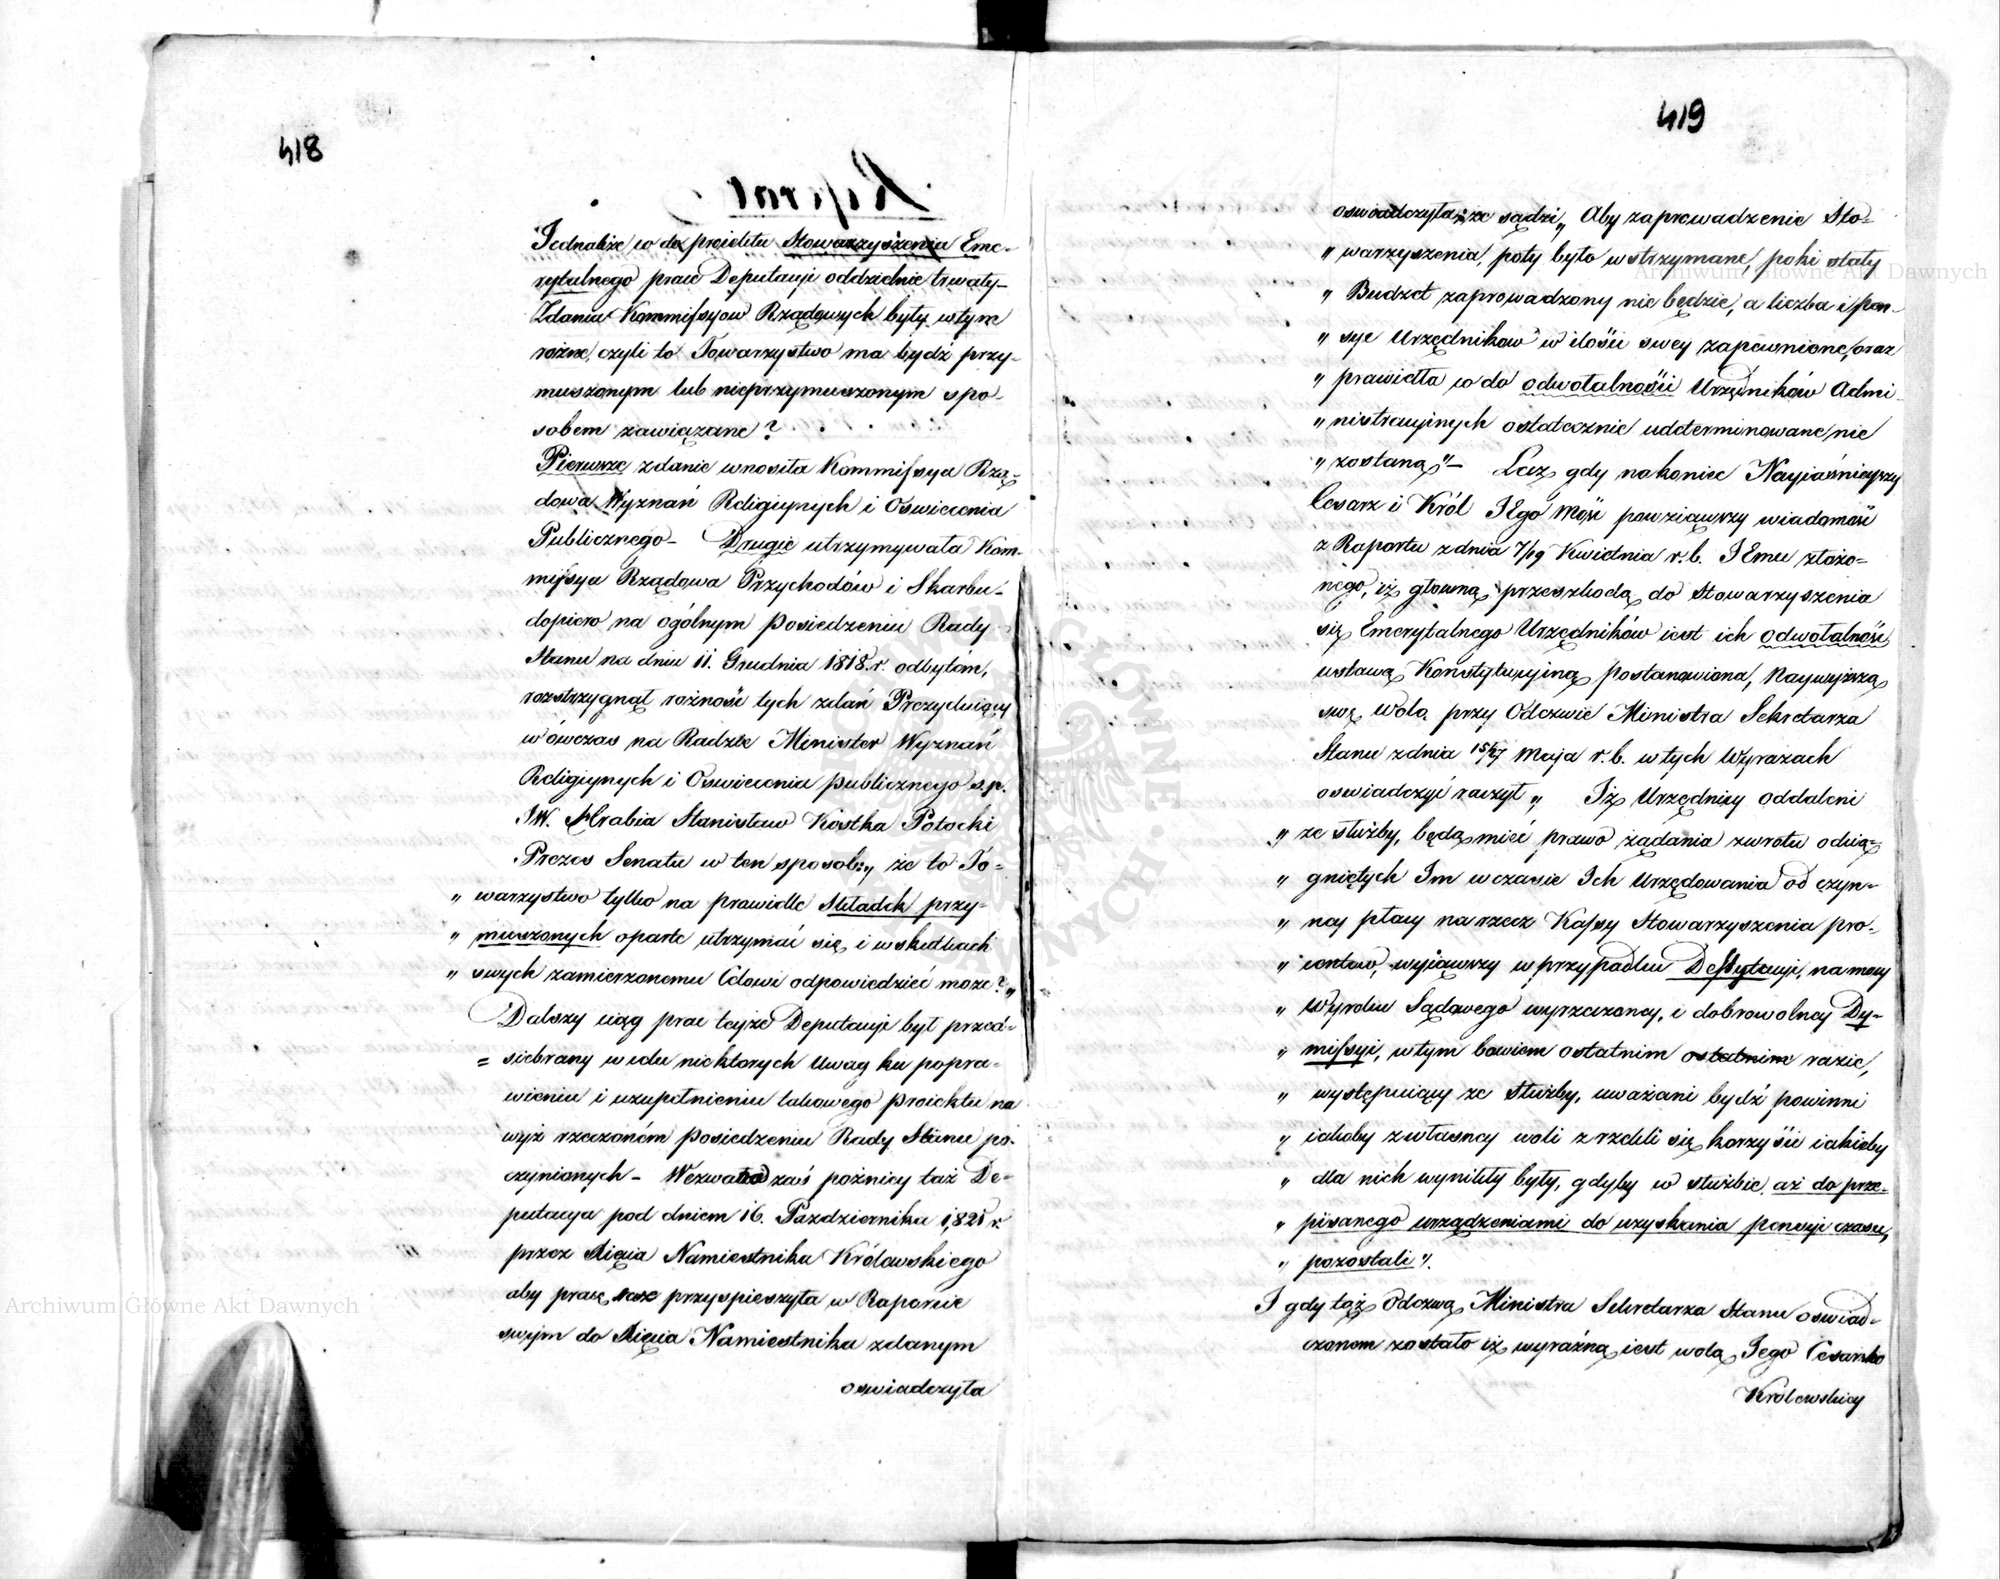 418
Jednakże co do proiektu Stowarzyszenia Eme-
rytalnego prace Deputacyi oddzielnie trwały-
Zdania Kommissyow Rządowych były w tym
rożne, czyli to Towarzystwo ma bydź przy-
muszonym lub nieprzymuszonym spo-
sobem zawiązane?
Pierwsze zdanie wnosiła Kommissya Rzą-
dowa Wyznań Religiynych i Oswiecenia
Publicznego - Drugie utrzymywała Kom-
missya Rządowa Przychodów i Skarbu-
dopiero na ogólnym posiedzeniu Rady
Stanu na dniu 11. Grudnia 1818. r. odbytem,
rozstrzygnął rożność tych zdań Prezyduiący
wówczas na Radzie Minister Wyznań
Religiynych i Oswiecenia publicznego s.p.
JW. Hrabia Stanisław Kostka Potocki
Prezes Senatu w ten sposob: „ że to To-
„ warzystwo tylko na prawidle Składek przy-
„ muszonych oparte utrzymać się, i w skutkach
„ swych zamierzonemu Celowi odpowiedzieć może? „
Dalszy ciąg prac teyże Deputacyi był przed-
= siebrany w celu niektorych Uwag ku popra-
wieniu i uzupełnieniu takowego proiektu na
wyż rzeczoném posiedzeniu Rady Stanu po-
czynionych - Wezwana zaś poźniey taż De-
putacya pod dniem 16. Pazdziernika 1,821 r.
przez Xięcia Namiestnika Królewskiego
aby pracę przyspieszyła w Raporcie
swym do Xięcia Namiestnika zdanym
oswiadczyła
419
oswiadczyła, że sądzi „ Aby zaprowadzenie Sto-
„ warzyszenia, poty było wstrzymane, poki stały
„ Budżet zaprowadzony nie będzie, a liczba i pen-
„ sye Urzędnikow w ilości swey zapewnione, oraz
„ prawidła co do odwołalności Urzędników Admi-
„ nistracyinych ostatecznie udeterminowane nie
„ zostaną" - Lecz gdy nakoniec Nayiaśnieyszy
Cesarz i Król JEgo Mość powziąwszy wiadomość
z Raportu z dnia 7/19 Kwietnia r. b. JEmu złożo-
nego, iż głowną przeszkodą do Stowarzyszenia
się Emerytalnego Urzędników iest ich odwołalność
ustawą Konstytucyiną postanowiona, Naywyższą
swą Wolą przy Odezwie Ministra Sekretarza
Stanu z dnia 15/27 Maja r. b. w tych Wyrazach
oswiadczyć raczył „ Iż Urzędnicy oddaleni
„ ze służby, będą mieć prawo żądania zwrotu odcią-
„ gniętych Im w czasie Ich Urzędowania od czyn-
„ ney płacy na rzecz Kassy Stowarzyszenia pro-
„ centow, wyiąwszy w przypadku Destytucyi, na mocy
„ Wyroku Sądowego wyrzeczoney, i dobrowolney Dy-
„ missyi, w tym bowiem ostatnim ostatnim razie,
„ występuiący ze służby, uważani bydź powinni
„ iakoby z własney woli zrzekli się korzyści iakieby
„ dla nich wynikły były, gdyby w służbie, aż do prze-
„ pisanego urządzeniami do uzyskania pensyi czasu,
„ pozostali".
I gdy tąż Odezwą Ministra Sekretarza Stanu oswiad-
czonem zostało iż wyraźną iest wolą Jego Cesarsko
Królewskiey
Archiwum Główne Akt Dawnych
Archiwum Główne Akt Dawnych